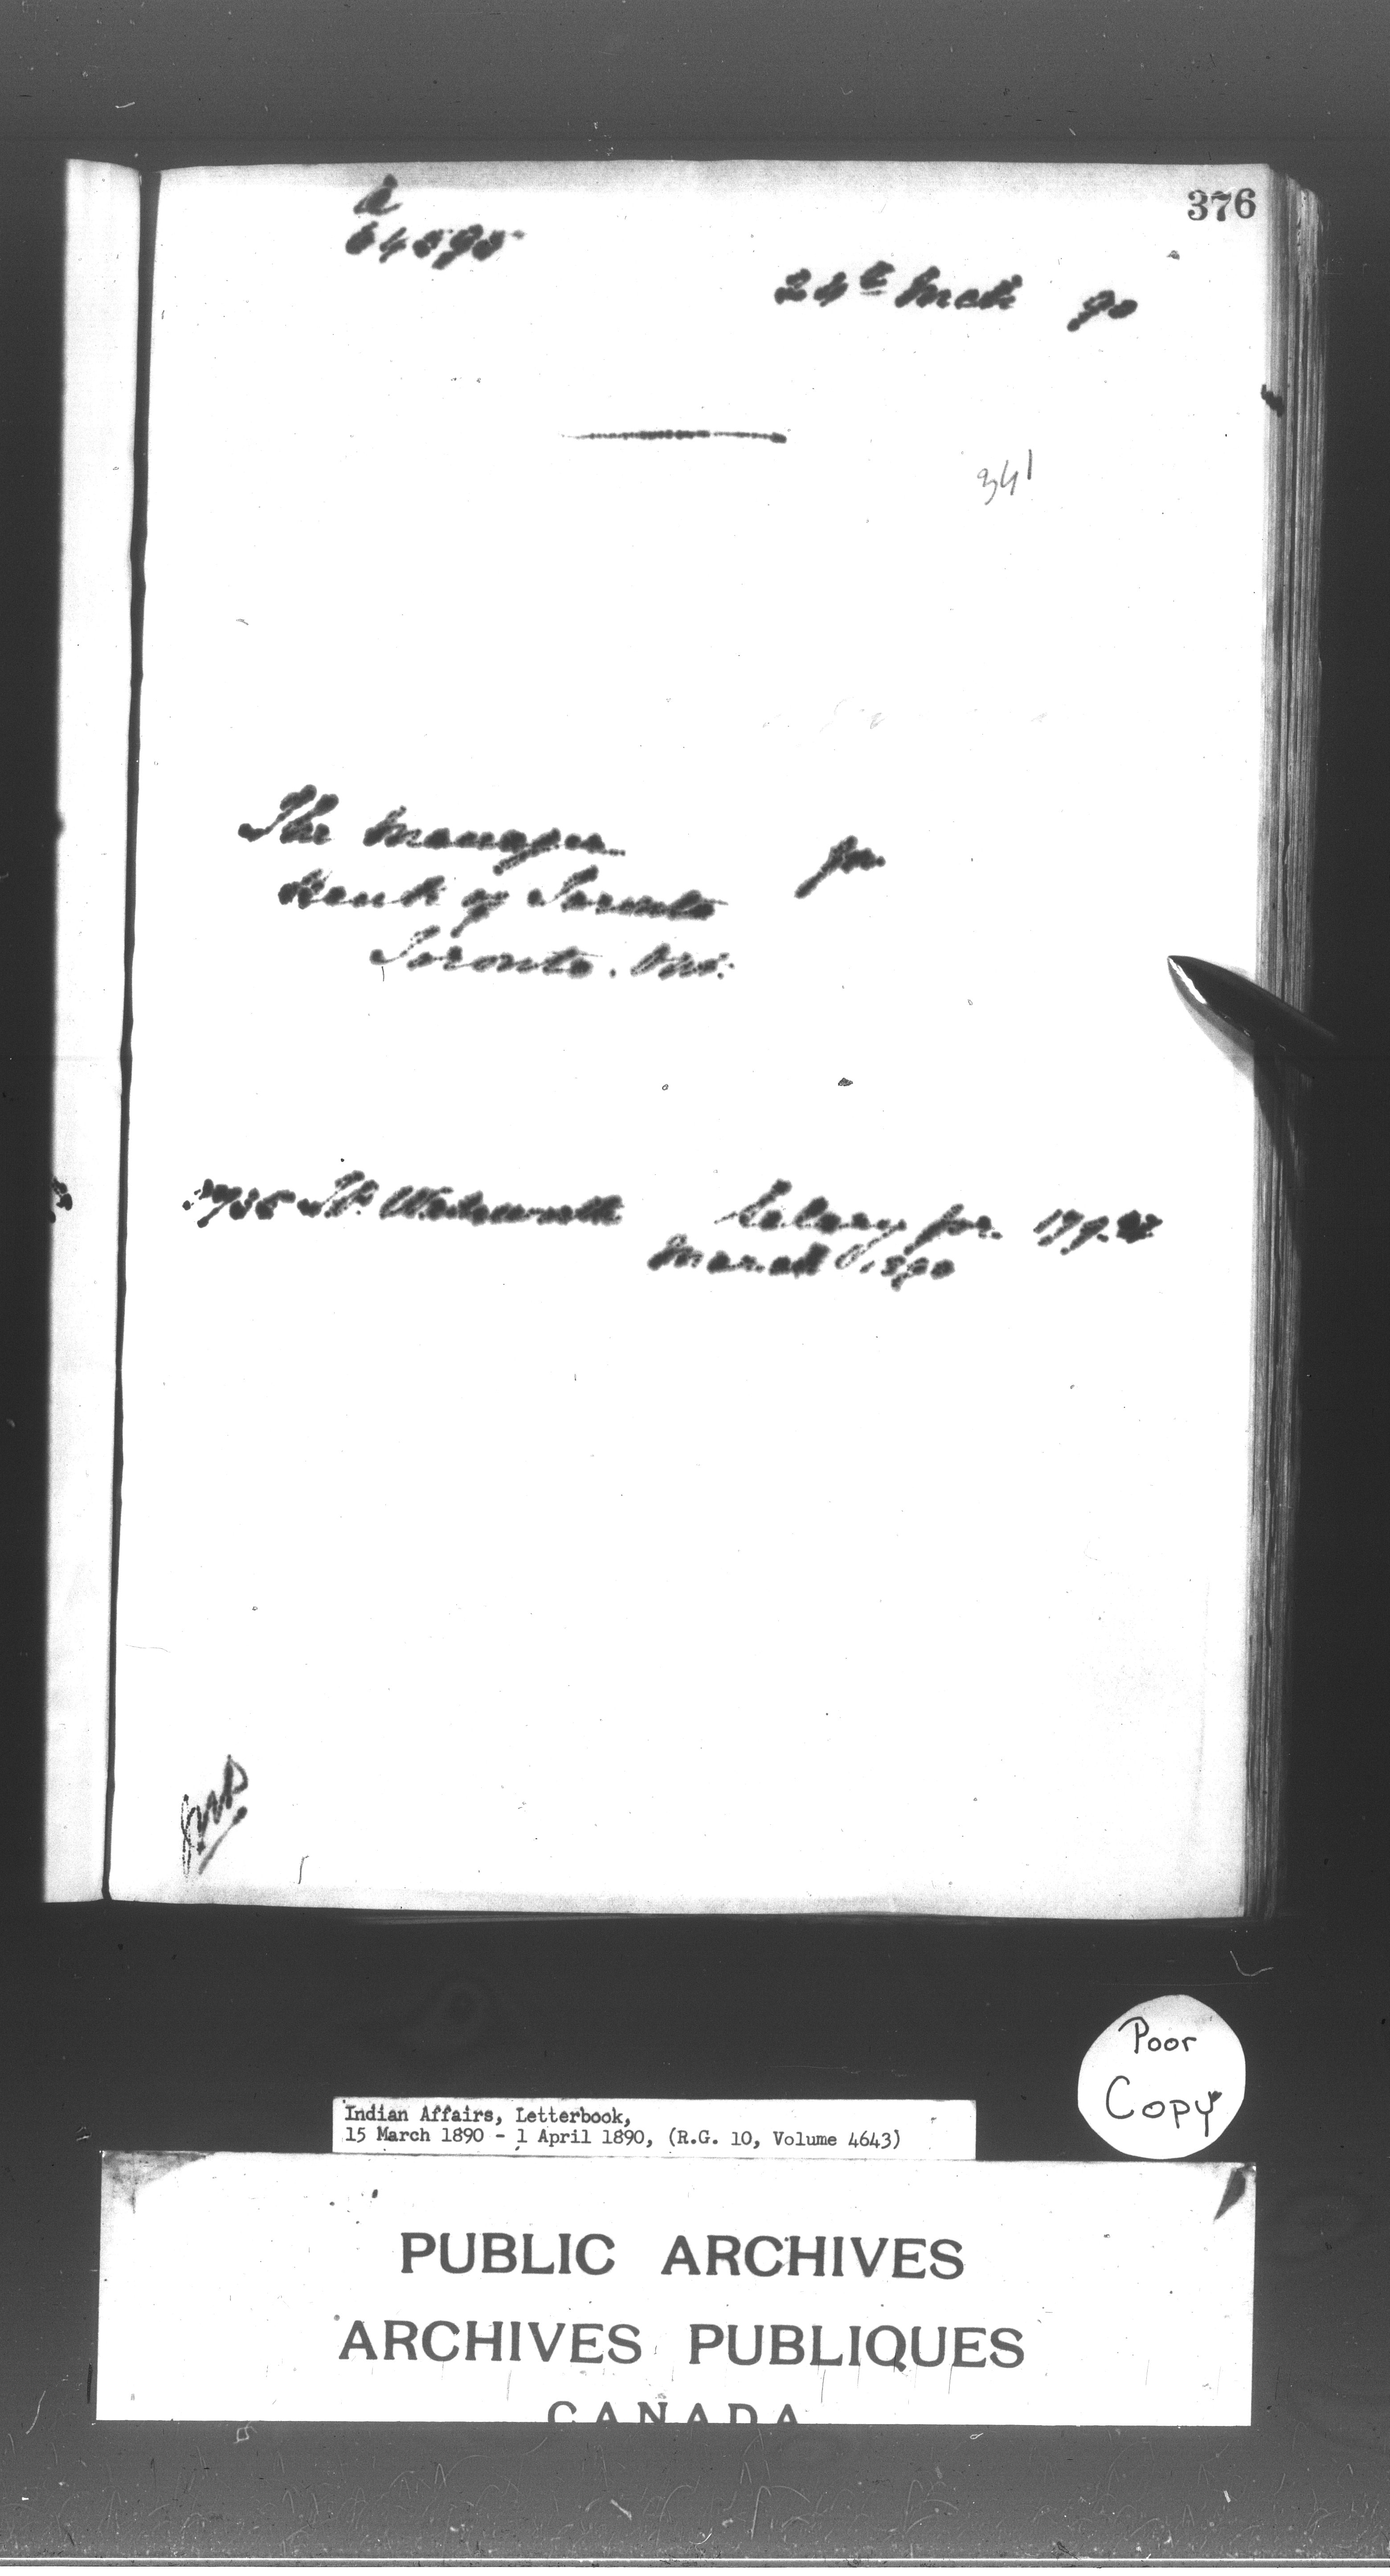 376
a
64595
24th Mch 90
341
The Manager
Bank of Toronto
Toronto. Ont:
for
T.P. Wadsworth Salary for 179.
March 1890
Poor
Copy
Indian Affairs, Letterbook,
15 March 1890 - 1 April 1890, (R.G. 10, Volume 4643)
PUBLIC ARCHIVES
ARCHIVES PUBLIQUES
CANADA